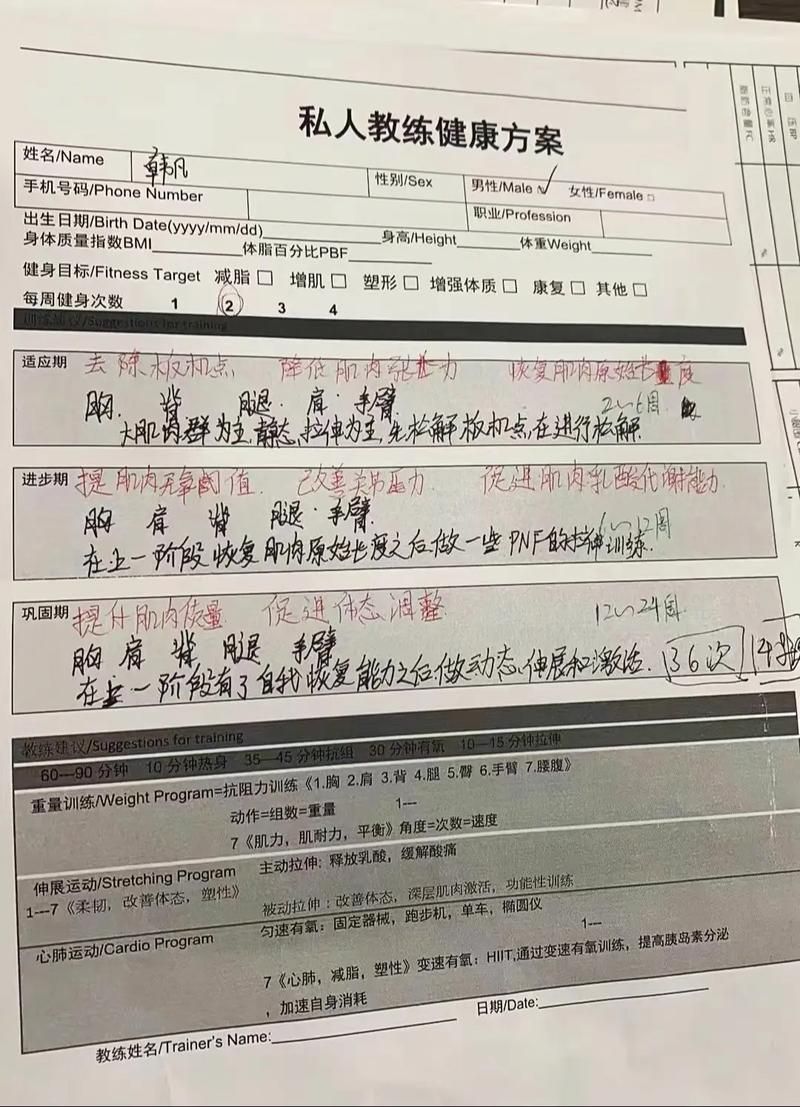 私人教练健康方案
姓名/Name 韩凡 性别/Sex 男性/Male ✓ 女性/Female □
手机号码/Phone Number 职业/Profession
出生日期/Birth Date(yyyy/mm/dd) 身高/Height 体重Weight
身体质量指数BMI 体脂百分比PBF
健身目标/Fitness Target 减脂 □ 增肌 □ 塑形 □ 增强体质 □ 康复 □ 其他 □
每周健身次数 1 2 3 4
训练建议/Suggestions for training
适应期 去除板机点 降低肌肉张力 恢复肌肉原始长度
胸. 背 腿. 肩. 手臂 2~6周
大肌肉群为主,静态拉伸为主,先松解板机点,在进行松解.
进步期 提肌肉兴奋阈值. 改善关节压力. 促进肌肉乳酸代谢能力.
胸 肩 背 腿. 手臂. 6~12周
在上一阶段恢复肌肉原始长度之后做一些PNF的拉伸训练.
巩固期 提升肌肉质量 促进体态调整 12~24周.
胸 肩 背 腿 手臂
在上一阶段有了自我恢复能力之后,做动态、伸展和激活. 36次
教练建议/Suggestions for training
60—90 分钟 10 分钟热身 35—45 分钟抗组 30 分钟有氧 10—15 分钟拉伸
重量训练/Weight Program=抗阻力训练《1.胸 2.肩 3.背 4.腿 5.臀 6.手臂 7.腰腹》
动作=组数=重量 1---
7《肌力，肌耐力，平衡》角度=次数=速度
伸展运动/Stretching Program 主动拉伸: 释放乳酸，缓解酸痛
1---7《柔韧，改善体态，塑性》 被动拉伸：改善体态，深层肌肉激活，功能性训练
心肺运动/Cardio Program 匀速有氧：固定器械，跑步机，单车，椭圆仪
1---
7《心肺，减脂，塑性》变速有氧：HIIT,通过变速有氧训练，提高胰岛素分泌
，加速自身消耗
教练姓名/Trainer's Name: 日期/Date: